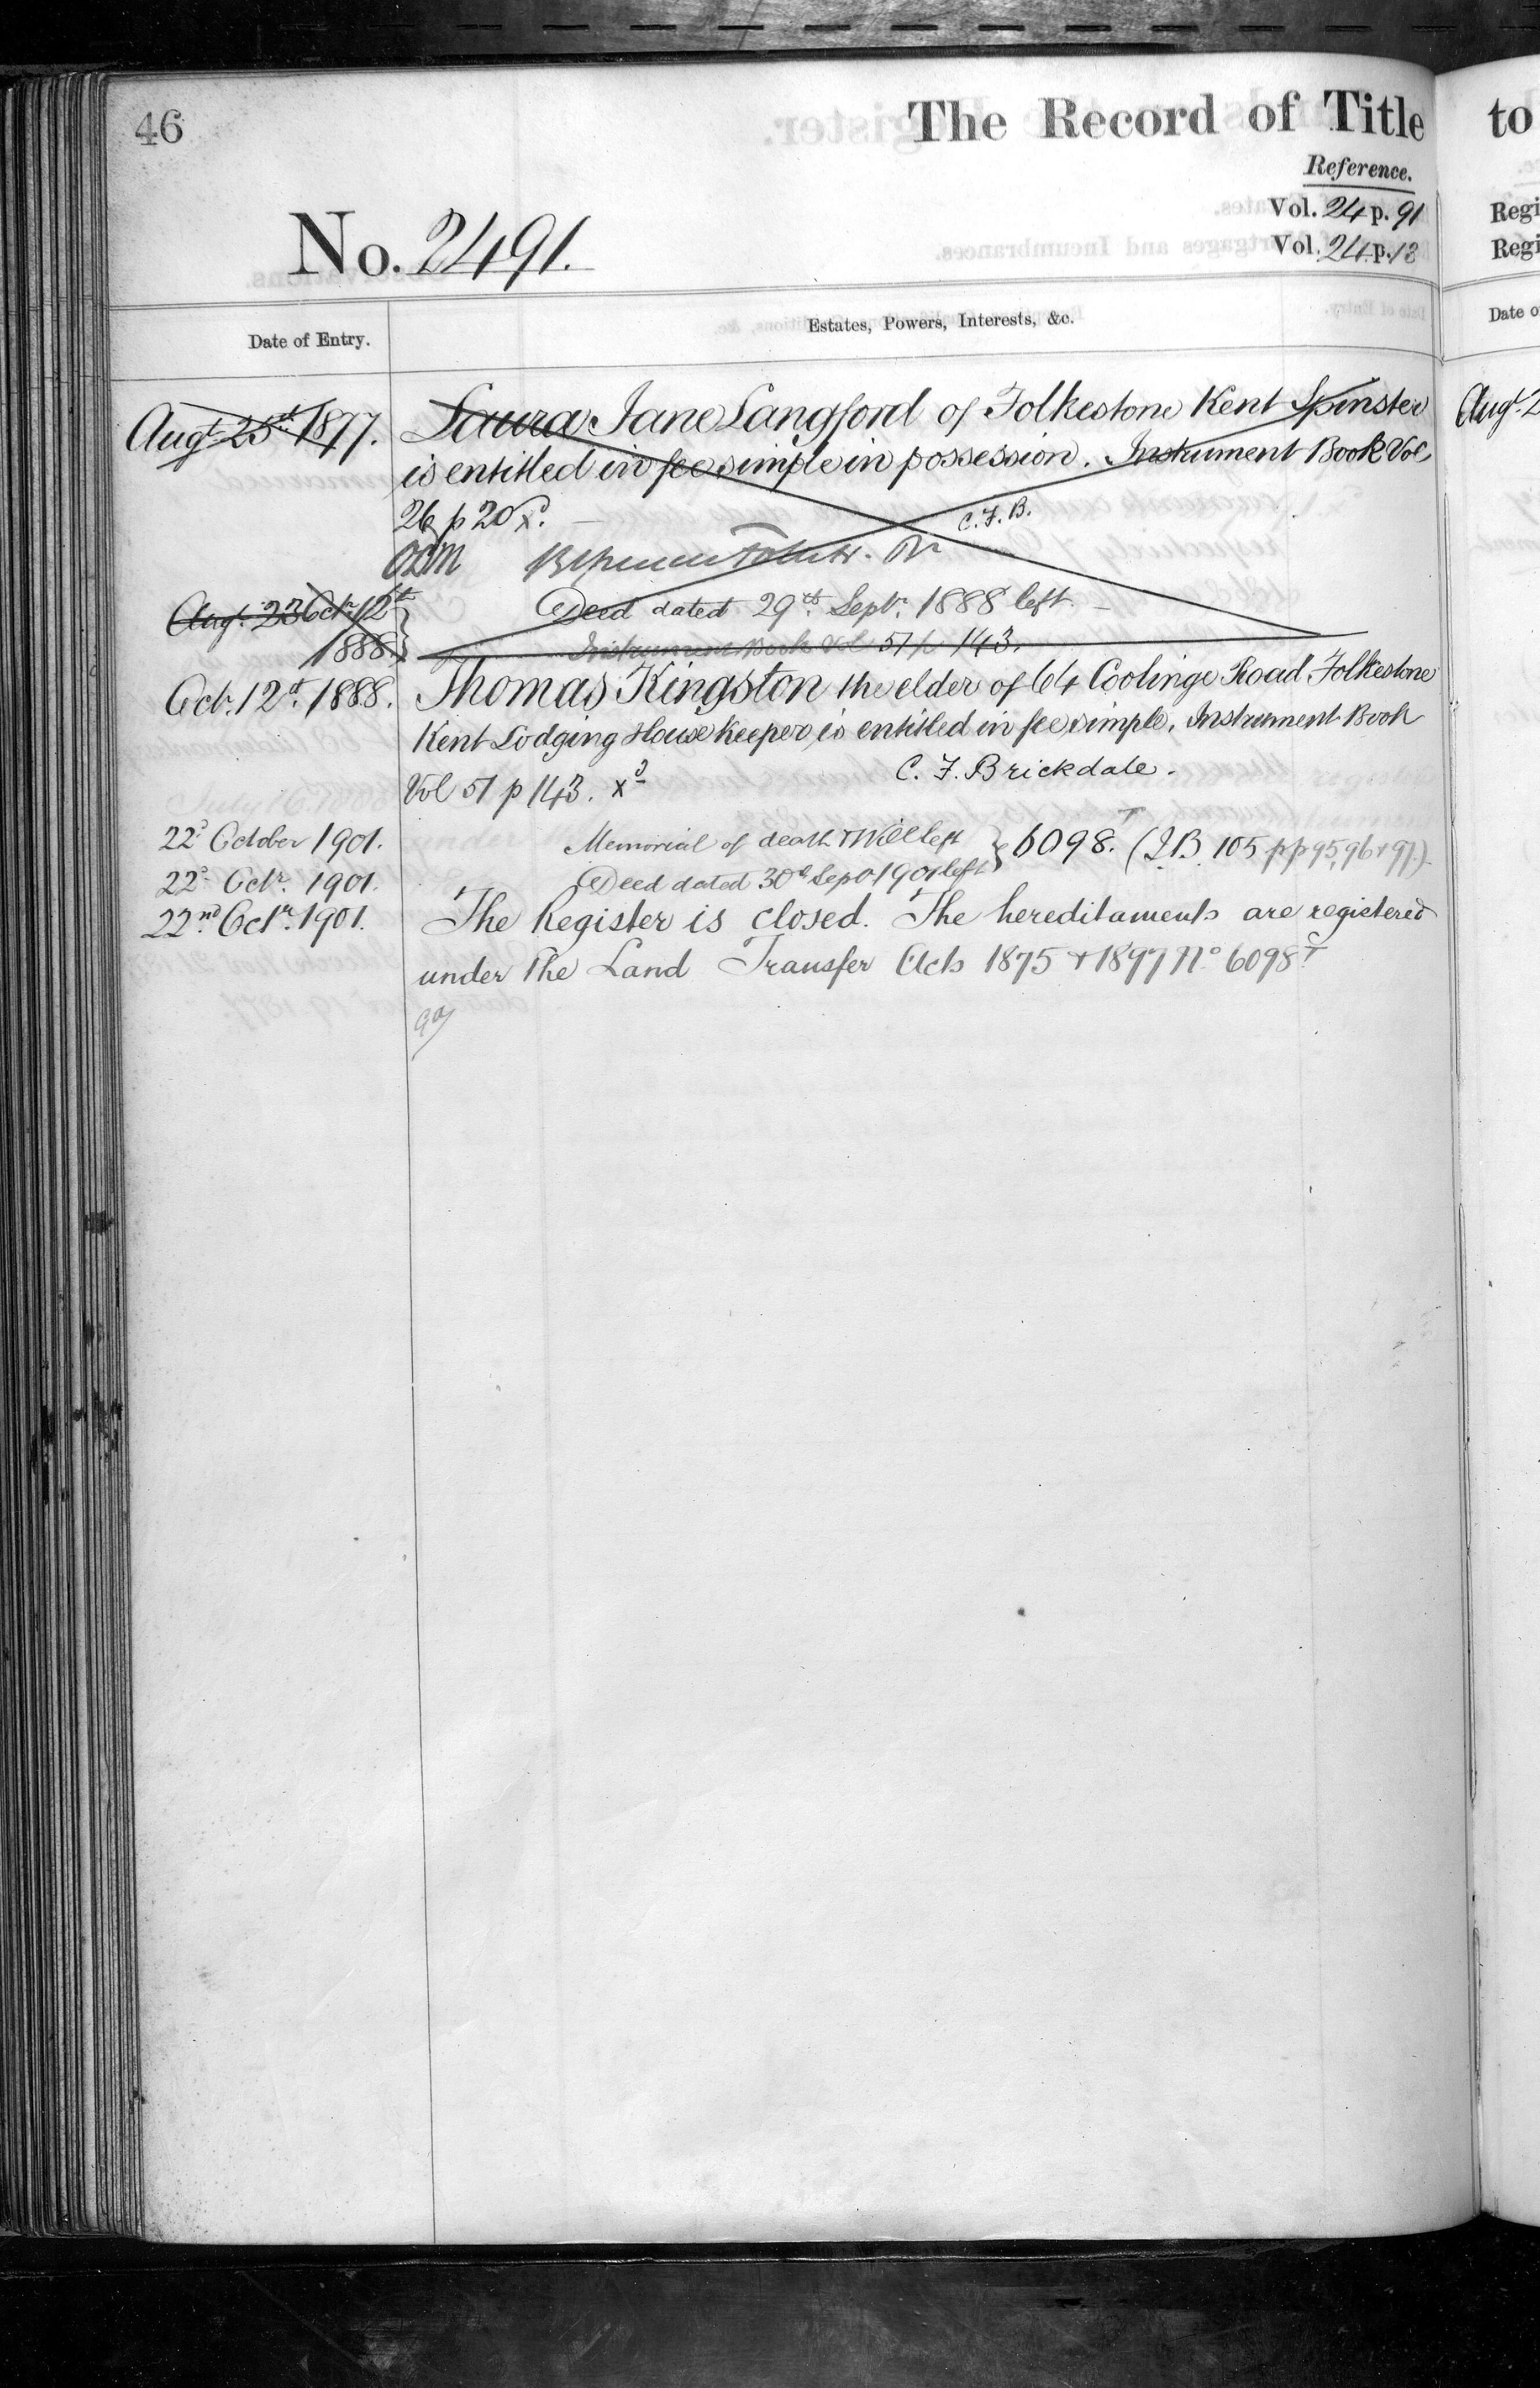 46
The Record of Title
to
Reference.
Vol. 24 p. 91
Vol. 24 p. 13
Regi
Regi
No. 2491.
Date of Entry.
Estates, Powers, Interests, &c.
Date o
Augt. 25th 1877.
Laura Jane Langford of Folkestone Kent Spinster
is entitled in fee simple in possession. Instrument Book Vol.
26 p 20 xd.
C.F.B.
Augt. 23 Octr. 12th
1888
Deed dated 29th Septr. 1888 left
Instrument Book Vol 51 p 143.
Octr. 12th 1888.
Thomas Kingston the elder of 64 Coolinge Road Folkestone
Kent Lodging House Keeper is entitled in fee simple. Instrument Book
Vol 51 p 143. xd
C. F. Brickdale.
22d October 1901.
Memorial of death & Will left
22d Octr. 1901.
Deed dated 30th Sepr 1901 left
6098T. (I.B. 105 pp 95, 96 & 97)
22nd Octr. 1901.
The Register is closed. The hereditaments are registered
under the Land Transfer Acts 1875 & 1897 No 6098T
Augt 2